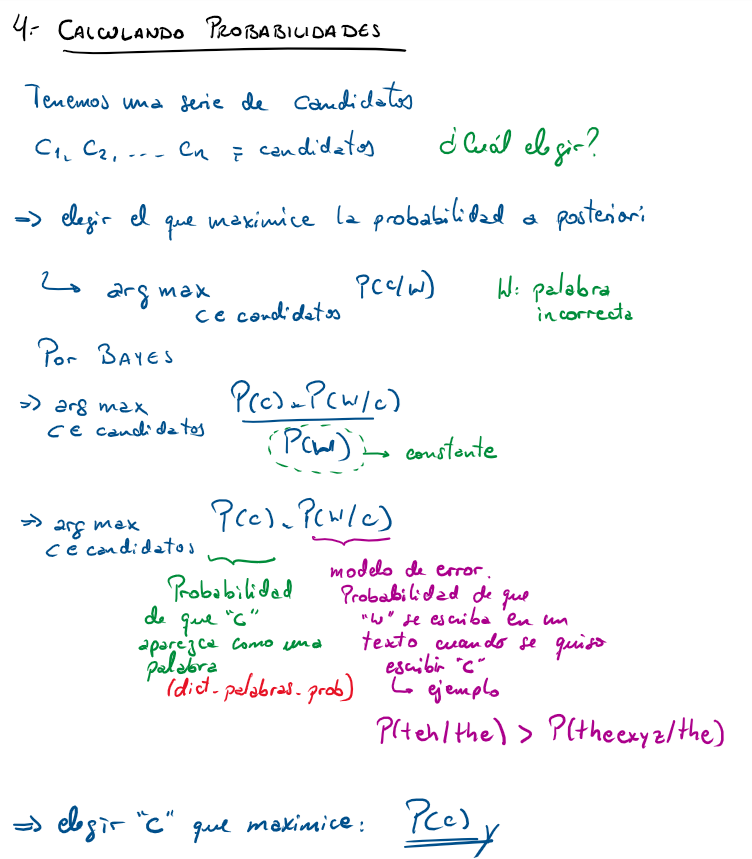 4.- CALCULANDO PROBABILIDADES
Tenemos una serie de candidatos
C1, C2, .... Cn = candidatos ¿Cuál elegir?
=> elegir el que maximice la probabilidad a posteriori
↳ arg max P(c/w) W: palabra
c ∈ candidatos incorrecta
Por BAYES
=> arg max P(c) . P(w/c)
c ∈ candidatos P(w) → constante
=> arg max P(c) . P(w/c)
c ∈ candidatos
Probabilidad
de que "c"
aparezca como una
palabra
(dict_palabras_prob)
modelo de error.
Probabilidad de que
"w" se escriba en un
texto cuando se quiso
escribir "c"
↳ ejemplo
P(teh/the) > P(theexyz/the)
=> elegir "c" que maximice: P(c)